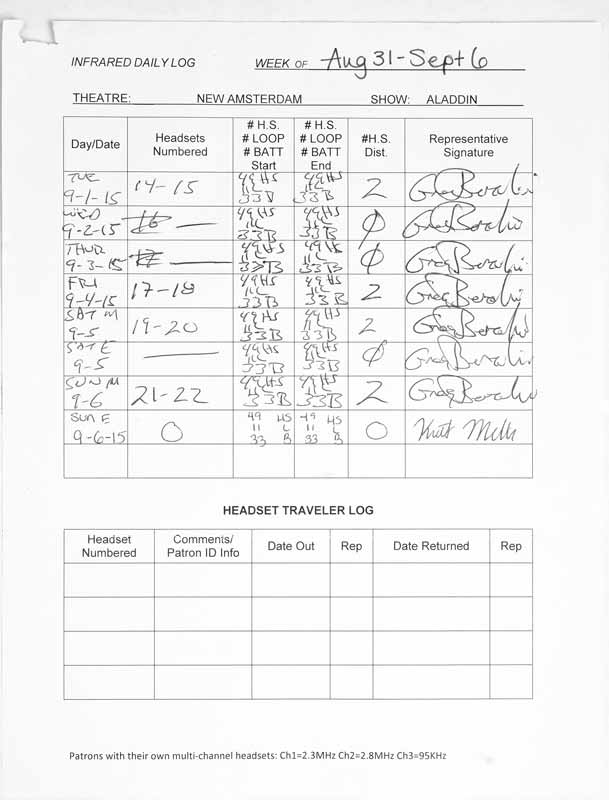 INFRARED DAILY LOG WEEK OF Aug 31-Sept 6
THEATRE: NEW AMSTERDAM SHOW: ALADDIN
Day/Date Headsets Numbered # H.S. # LOOP # BATT Start # H.S. # LOOP # BATT End #H.S. Dist. Representative Signature
TUE 9-1-15 14-15 49HS 11L 33B 49HS 11L 33B 2
WED 9-2-15 49HS 11L 33B 49HS 11L 33B 0
THUR 9-3-15 49HS 11L 33B 49HS 11L 33B 0
FRI 9-4-15 17-18 49HS 11L 33B 49HS 11L 33B 2
SAT M 9-5 19-20 49HS 11L 33B 49HS 11L 33B 2
SAT E 9-5 — 49HS 11L 33B 49HS 11L 33B 0
SUN M 9-6 21-22 49HS 11L 33B 49HS 11L 33B 2
SUN E 9-6-15 0 49 HS 11 L 33 B 49 HS 11 L 33 B 0
HEADSET TRAVELER LOG
Headset Numbered Comments/ Patron ID Info Date Out Rep Date Returned Rep
Patrons with their own multi-channel headsets: Ch1=2.3MHz Ch2=2.8MHz Ch3=95KHz